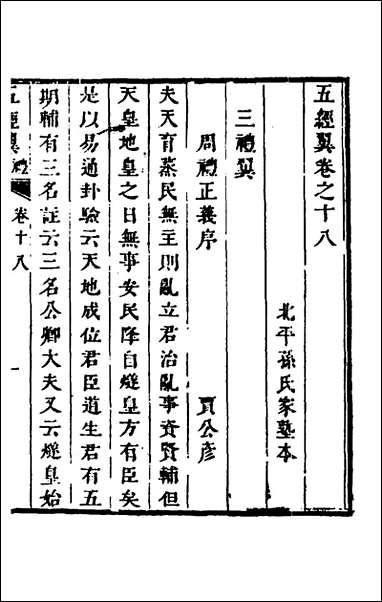 五經翼卷之十八
北平孫氏家塾本
三禮翼
周禮正義序 賈公彥
夫天育蒸民無主則亂立君治亂事資賢輔但
天皇地皇之日無事安民降自燧皇方有臣矣
是以易通卦驗云天地成位君臣道生君有五
期輔有三名註云三名公卿大夫又云燧皇始
五經翼禮 卷十八 一